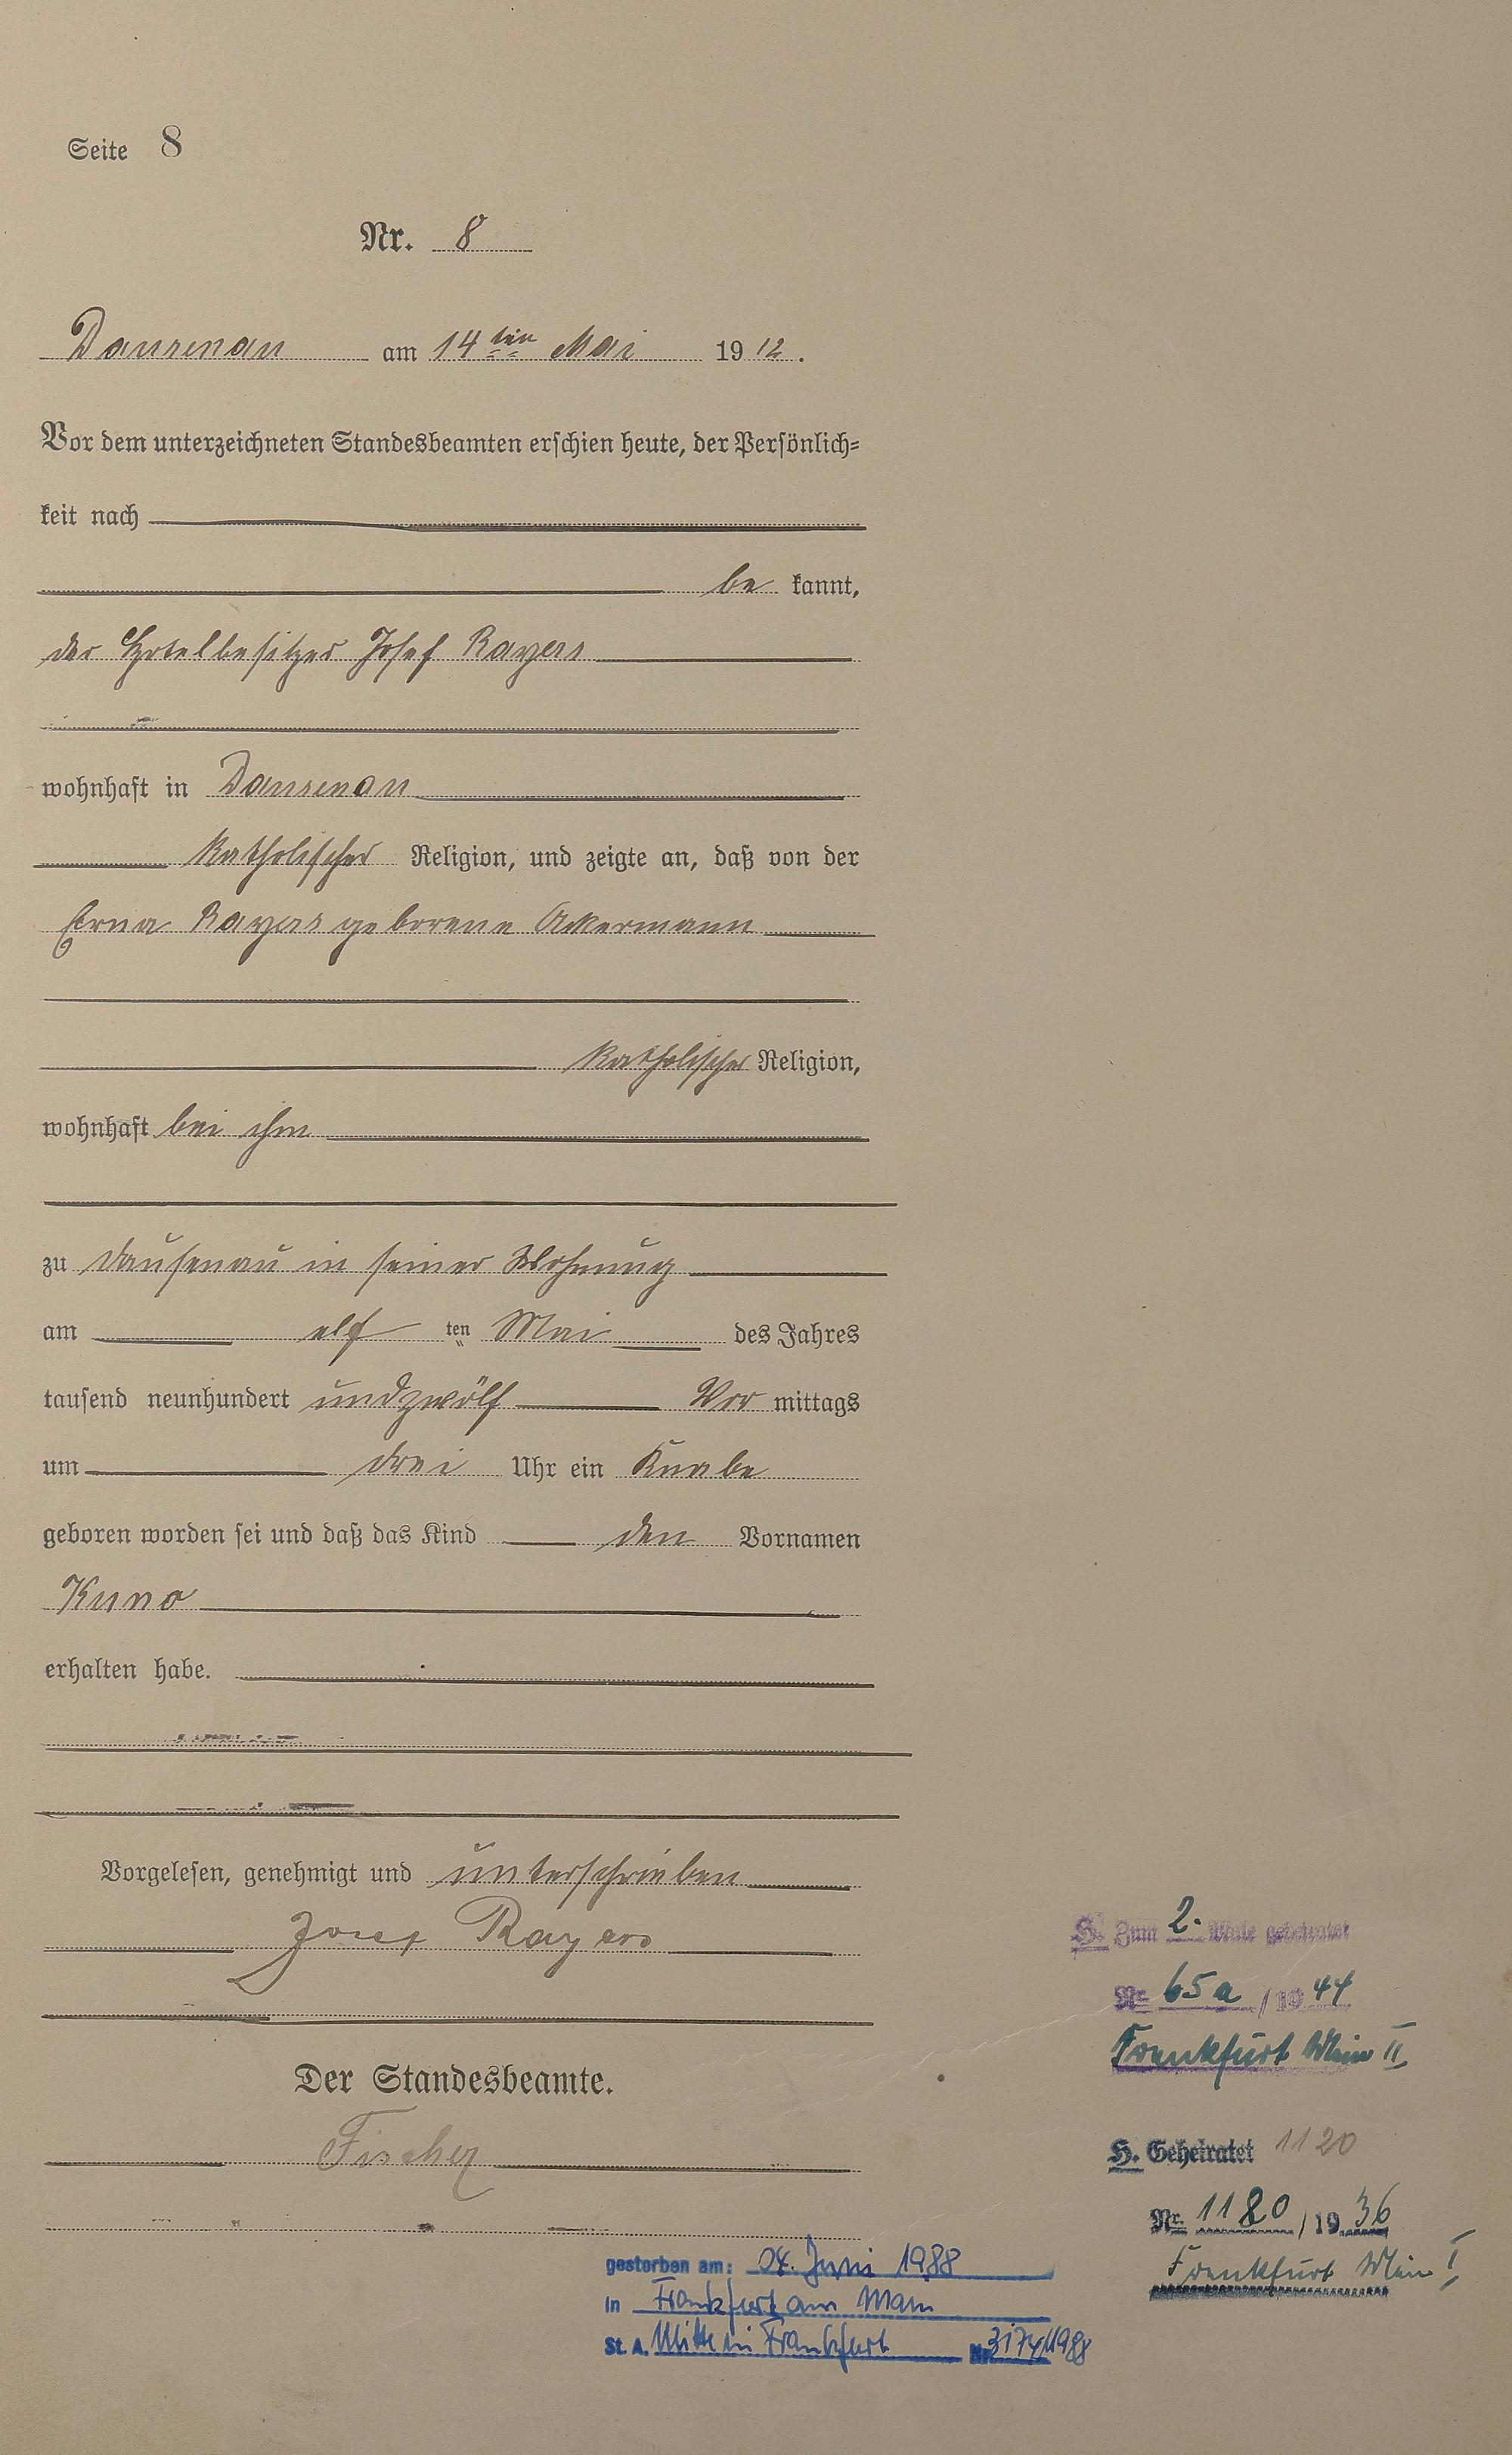 Seite 8
Nr. 8
Dausenau am 14ten Mai 1912.
Vor dem unterzeichneten Standesbeamten erschien heute, der Persönlich-
keit nach
be kannt,
der Hotelbesitzer Josef Rayers
wohnhaft in Dausenau
katholischer Religion, und zeigte an, daß von der
Erna Rayers geborene Ackermann
katholischer Religion,
wohnhaft bei ihm
zu Dausenau in seiner Wohnung
am elf ten Mai des Jahres
tausend neunhundert undzwölf Vor mittags
um drei Uhr ein Knabe
geboren worden sei und daß das Kind den Vornamen
Kuno
erhalten habe.
Vorgelesen, genehmigt und unterschrieben
Josef Rayers
Der Standesbeamte.
Fischer
H. Zum 2. Male geheiratet
Nr. 65a / 1944
Frankfurt Main II
H. Geheiratet 1120
Nr. 1180 / 1936
Frankfurt Main I
gestorben am: 04. Juni 1988
in Frankfurt am Main
St. A. Mitte in Frankfurt Nr. 3174/1988